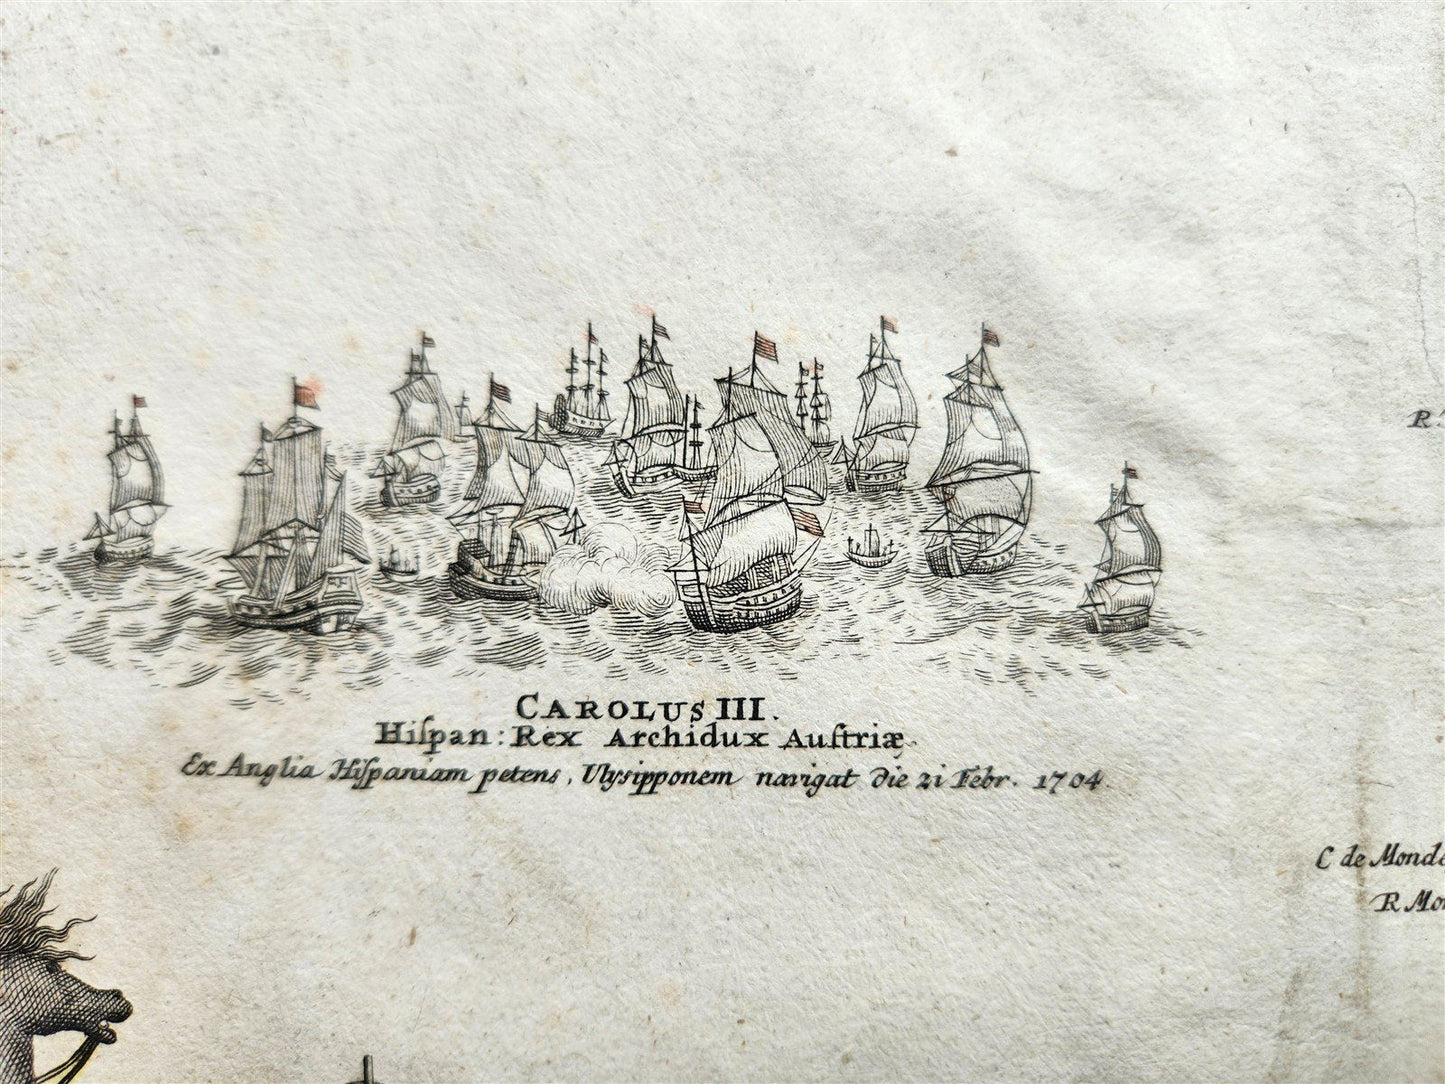 CAROLUS III.
Hiſpan: Rex Archidux Auſtriæ.
Ex Anglia Hiſpaniam petens, Ulysipponem navigat die 21 Febr. 1704.
C de
R